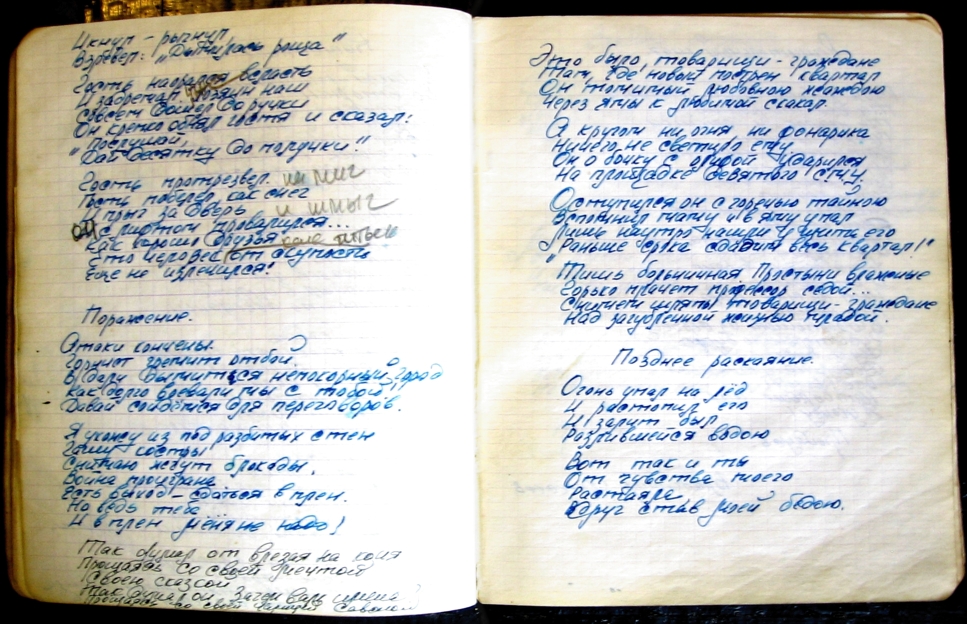 Икнул - рыгнул
Взревел: „Дымилась роща"
Гость нажрался всласть
И захрепел хозяин наш
Совсем дошёл до ручки
Он крепко обнял гостя и сказал:
"Послушай,
Дай десятку до получки!"
Гость протрезвел. на миг
Гость побелел как снег
И прыг за дверь и шмыг
Он с лифтом провалился...
Как хорошо друзья
Что человек от скупости
Ещё не излечился!
Поражение.
Атаки кончены.
Горнист трепит отбой
В дали дымиться непокорный город
Как долго воевали мы с тобой
Давай сойдёмся для переговоров.
Я ухожу из под разбитых стен
Гашу костры
Снимаю жгут блокады.
Война проиграна
Есть выход - сдаться в плен.
Но ведь тебе...
И в плен меня не надо!
Так думал он врезая на коня
Прощаясь со своей мечтой
Своею сказкой
Так думал он. Зачем
Прощаясь со своей
Это было, товарищи - граждане
Там, где новый построен квартал
Он томимый любовною жаждою
Через ямы к любимой скакал.
А кругом ни огня ни фонарика
Ничего не светило ему
Он о бочку с олифой ударился
На площадке девятого СМУ.
Оступился он с горечью тайною
Вспомнил маму и в яму упал
Лишь наутро нашли и учить его
„Раньше срока сдадим весь квартал!"
Тишь больничная Простыни влажные
Горько плачет профессор седой...
Снимем шляпы товарищи-граждане
Над загубленной жизнью младой.
Позднее раскаяние.
Огонь упал на лёд
И растопил его
И залит был
Разлившейся водою
Вот так и ты
От чувства моего
Растаяла
Вдруг став моей бедою.